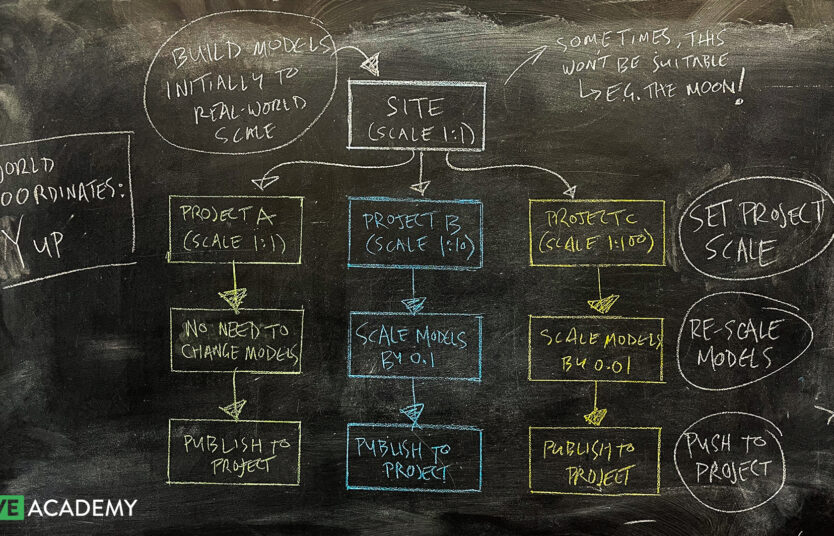 BUILD MODELS
INITIALLY TO
REAL-WORLD
SCALE
SOMETIMES, THIS
WON'T BE SUITABLE
↳ E.G. THE MOON!
SITE
(SCALE 1:1)
WORLD
COORDINATES:
Y UP
PROJECT A
(SCALE 1:1)
PROJECT B
(SCALE 1:10)
PROJECT C
(SCALE 1:100)
SET PROJECT
SCALE
NO NEED TO
CHANGE MODELS
SCALE MODELS
BY 0.1
SCALE MODELS
BY 0.01
RE-SCALE
MODELS
PUBLISH TO
PROJECT
PUBLISH TO
PROJECT
PUBLISH TO
PROJECT
PUSH TO
PROJECT
VE ACADEMY